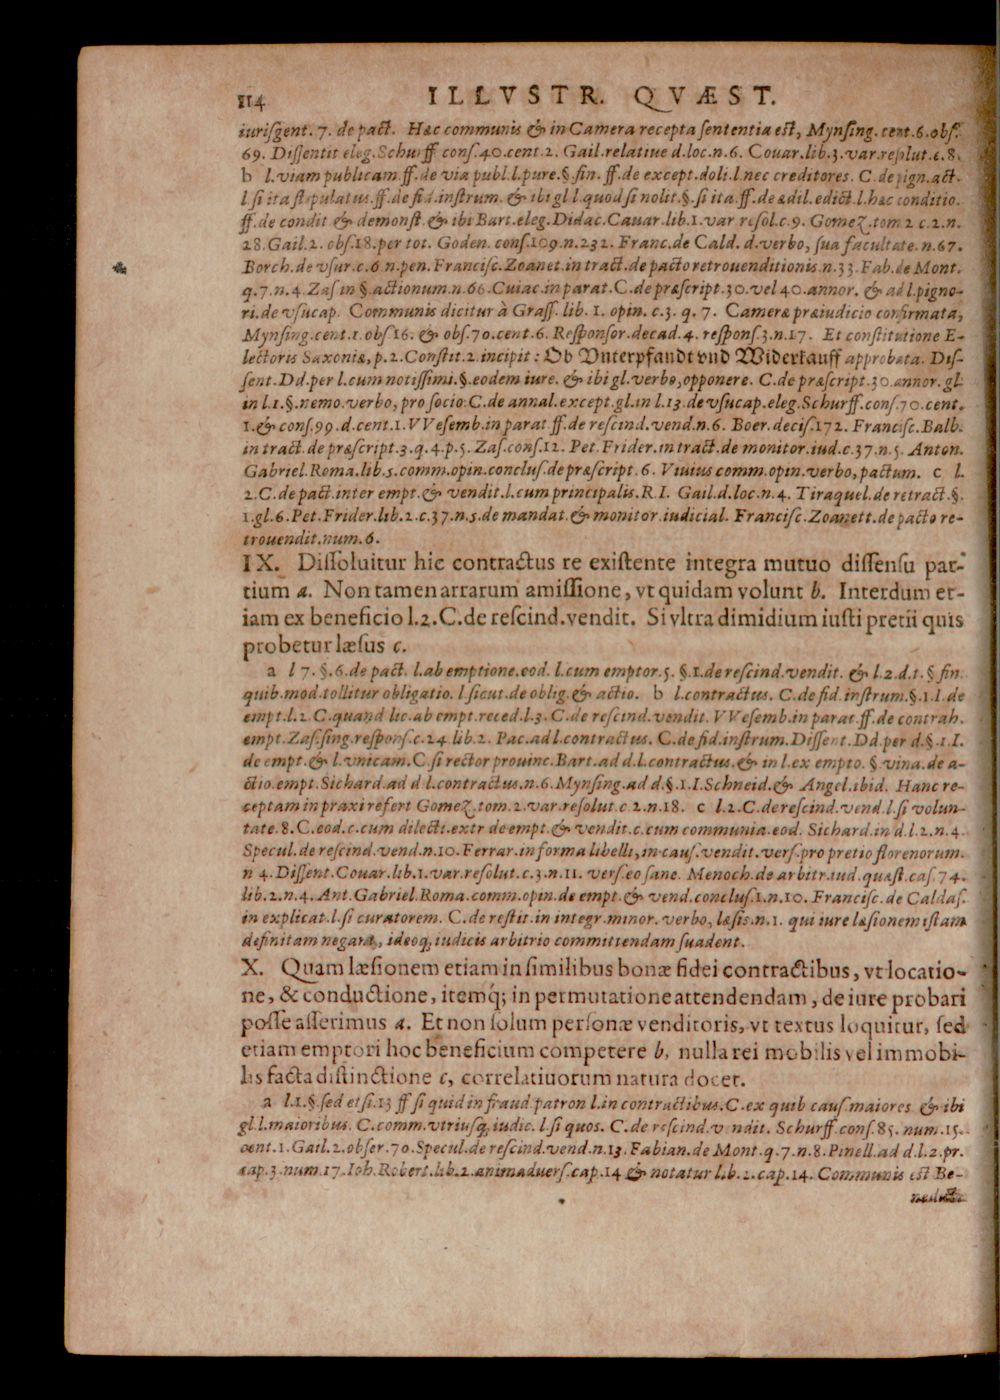 114 ILLVSTR. QVÆST.
iurisgent. 7. de pact. Hæc communis & in Camera recepta sententia est, Mynsing. cent.6.obs.
69. Dissentit eleg.Schurff cons.40.cent.2. Gail.relatiue d.loc.n.6. Couar.lib.3.var.resolut.c.8.
b l.viam publicam.ff.de via publ.l.pure.§.fin. ff.de except.doli.l nec creditores. C.de pign.act.
l.si ita stipulatus.ff.de fid.instrum. & ibi gl l.quod si nolit.§.si ita.ff.de ædil.edict.l.hæc conditio.
ff.de condit & demonst.& ibi Bart.eleg.Didac.Cauar.lib.1.var resol.c.9. Gomez.tom 2 c.2.n.
28.Gail.2. obs.18.per tot. Goden. cons.109.n.232. Franc.de Cald. d.verbo, sua facultate.n.67.
Borch.de vsur.c.6 n.pen.Francisc.Zoanet.in tract.de pacto retrouenditionis.n.33.Fab.de Mont.
q.7.n.4.Zas in §.actionum.n.66.Cuiac.in parat.C.de præscript.30.vel 40.annor. & ad l.pigno-
ri.de vsucap. Communis dicitur à Grass.lib. 1. opin. c.3. q. 7. Cameræ præiudicio confirmata,
Mynsing.cent.1.obs 16. & obs.70.cent.6. Responsor.decad.4. respons.3.n.17. Et constitutione E-
lectoris Saxoniæ, p.2.Constit.2.incipit: Ob Vnterpfandt vnd Widerkauff approbata. Dis-
sent.Dd.per l.cum notissimi.§.eodem iure. & ibi gl.verbo, opponere. C.de præscript.30.annor.gl.
in l.1.§.nemo.verbo, pro socio.C.de annal.except.gl.in l.13.de vsucap.eleg.Schurff.cons.70.cent.
1.& cons.99.d.cent.1.VVesemb.in parat ff.de rescind.vend.n.6. Boer.decis.172. Francisc.Balb.
in tract.de præscript.3.q.4.p.5. Zas.cons.12. Pet.Frider.in tract.de monitor.iud.c.37.n.5. Anton.
Gabriel.Roma.lib.5.comm.opin.conclus.de præscript.6. Viuius comm.opin.verbo, pactum. c l.
2.C.de pact.inter empt.& vendit.l.cum principalis.R.I. Gail.d.loc.n.4. Tiraquel.de retract.§.
1.gl.6.Pet.Frider.lib.2.c.37.n.5.de mandat.& monitor.iudicial. Francisc.Zoanett.de pacto re-
trouendit.num.6.
IX. Dissoluitur hic contractus re existente integra mutuo dissensu par-
tium a. Non tamen arrarum amissione, vt quidam volunt b. Interdum et-
iam ex beneficio l.2.C.de rescind.vendit. Si vltra dimidium iusti pretii quis
probetur læsus c.
a l 7.§.6.de pact. l.ab emptione.eod. l.cum emptor.5. §.1.de rescind.vendit. & l.2.d.t.§ fin.
quib.mod.tollitur obligatio. l sicut.de oblig.& actio. b l.contractus. C.de fid.instrum.§.1.I.de
empt.l.2.C.quand lic.ab empt.reced.l.3. C.de rescind.vendit. VVesemb.in parat.ff.de contrah.
empt.Zas.sing.respons.c.24.lib.2. Pac.ad l.contractus. C.de fid.instrum.Dissent.Dd.per d.§.1.I.
de empt.& l.vnicam.C.si rector prouinc.Bart.ad d.l.contractus.& in l.ex empto. §.vina.de a-
ctio.empt.Sichard.ad d l.contractus.n.6.Mynsing.ad d.§.1.I.Schneid.& Angel.ibid. Hanc re-
ceptam in praxi refert Gomez.tom.2.var.resolut.c 2.n.18. c l.2.C.de rescind.vend.l.si volun-
tate.8.C.eod.c.cum dilecti.extr de empt.& vendit.c.cum communia.eod. Sichard.in d.l.2.n.4.
Specul.de rescind.vend.n.10.Ferrar.in forma libelli, in caus.vendit.vers.pro pretio florenorum.
n 4.Dissent.Couar.lib.1.var.resolut.c.3.n.11. vers.eo sane. Menoch.de arbitr.iud.quæst.cas.74.
lib.2.n.4. Ant.Gabriel.Roma.comm.opin.de empt.& vend.conclus.1.n.10. Francisc.de Caldas.
in explicat.l.si curatorem. C.de restit.in integr.minor.verbo, læsis.n.1. qui iure læsionem istam
definitam negant, ideoq; iudicis arbitrio committendam suadent.
X. Quam læsionem etiam in similibus bonæ fidei contractibus, vt locatio-
ne, & conductione, itemq́; in permutatione attendendam, de iure probari
posse asserimus a. Et non solum personæ venditoris, vt textus loquitur, sed
etiam emptori hoc beneficium competere b, nulla rei mobilis vel immobi-
lis facta distinctione c, correlatiuorum natura docet.
a l.1.§.sed et si.13 ff si quid in fraud patron l.in contractibus.C.ex quib caus.maiores & ibi
gl.l.maioribus. C.comm.vtriusq; iudic. l.si quos. C.de rescind.vendit. Schurff.cons.85. num.15.
cent.1.Gail.2.obser.70.Specul.de rescind.vend.n.13.Fabian.de Mont.q.7.n.8.Pinell.ad d.l.2.pr.
cap.3.num.17.Ioh.Robert.lib.2.animaduers.cap.14 & notatur lib.2.cap.14. Communis est Be-